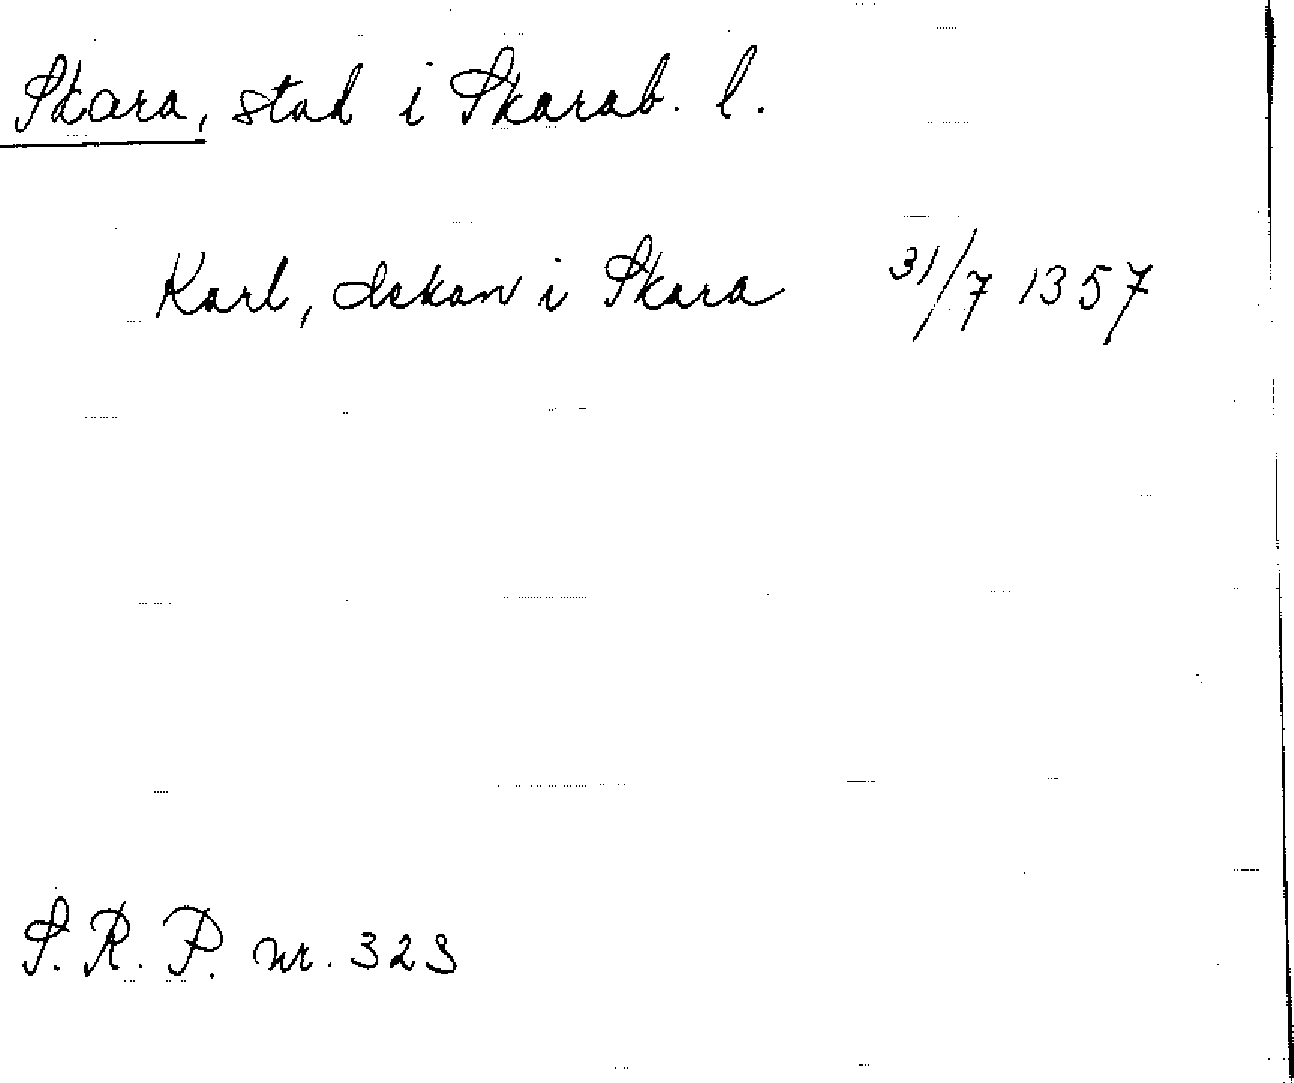 Skara, stad i Skarab. l.
Karl, dekan i Skara 31/7 1357
S.R.P. nr. 329